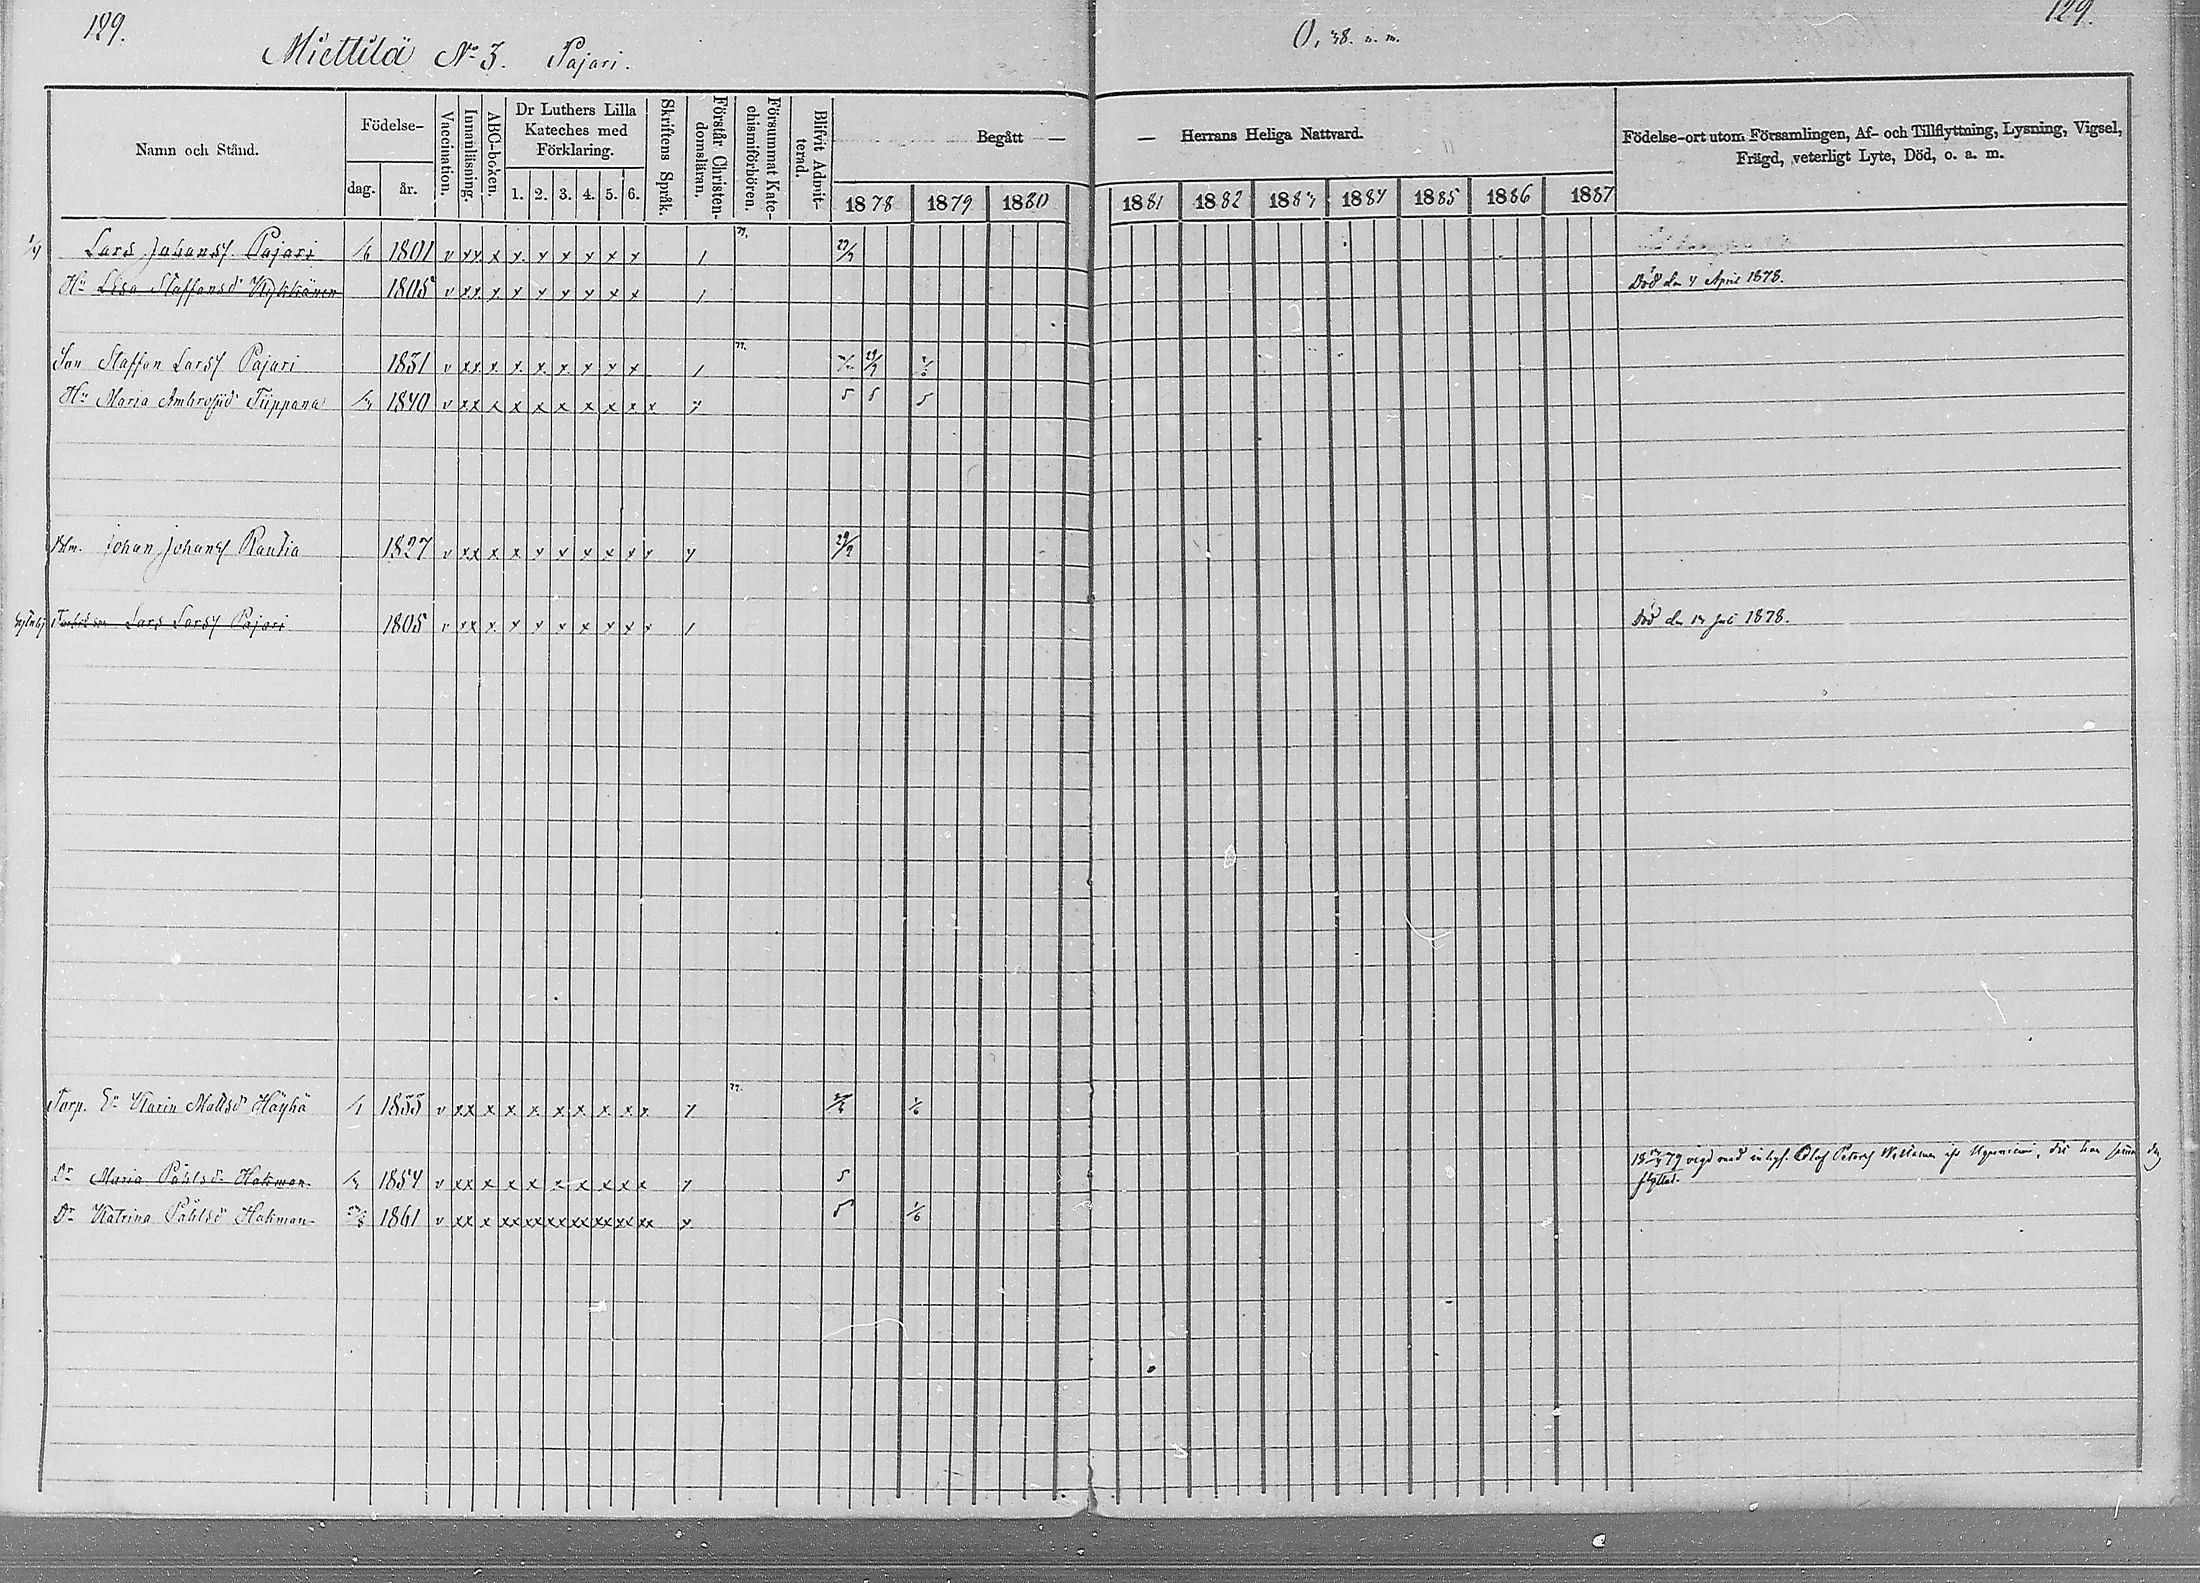 129.
129.
Miettilä No 3. Pajari.
0, 38. u. m.
Namn och Stånd.
Födelse-
dag.
år.
Vaccination.
Innanläsning.
ABC-boken.
Dr Luthers Lilla Kateches med Förklaring.
1. 2. 3. 4. 5. 6.
Skriftens Språk.
Förstår Christendomsläran.
Försummat Katechismiförhören.
Blifvit Admitterad.
Begått —
— Herrans Heliga Nattvard.
1878 1879 1880 1881 1882 1883 1884 1885 1886 1887
Födelse-ort utom Församlingen, Af- och Tillflyttning, Lysning, Vigsel,
Frägd, veterligt Lyte, Död, o. a. m.
Lars Johansf Pajari 1801 v xx x x x x x x x
Hu Lisa Staffansd Kykkänen 1805 v xx x x x x x x x Död den 4 April 1878.
Son Staffan Larsf Pajari 1831 v xx x x x x x x x
Hu Maria Ambrosid Tiippana 1840 v xx x x x x x x x x
Johan Johansf Rautia 1827 v xx x x x x x x x x 29/9
Lars Larsf Pajari 1805 v xx x x x x x x x x Död den Juli 1878.
Torp. Karin Mattsd Häyhä 1833 v xx x x x x x x x x 1/6
Dr Maria Påhlsd Hakman 1854 v xx x x x x x x x x 79 vigd med Olof Petersf
flyttad.
Dr Katrina Påhlsd Hakman 1861 v xx x xx xx xx xx xx xx xx 1/6